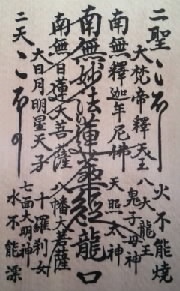 二聖
火不能焼
大梵帝釋天王
八大龍王
鬼子母神
南無釋迦牟尼佛
天照太神
南無妙法蓮華經 龍口
南無日蓮大菩薩
八幡大菩薩
大日月明星天子
十羅刹女
七面大明神
二天
水不能